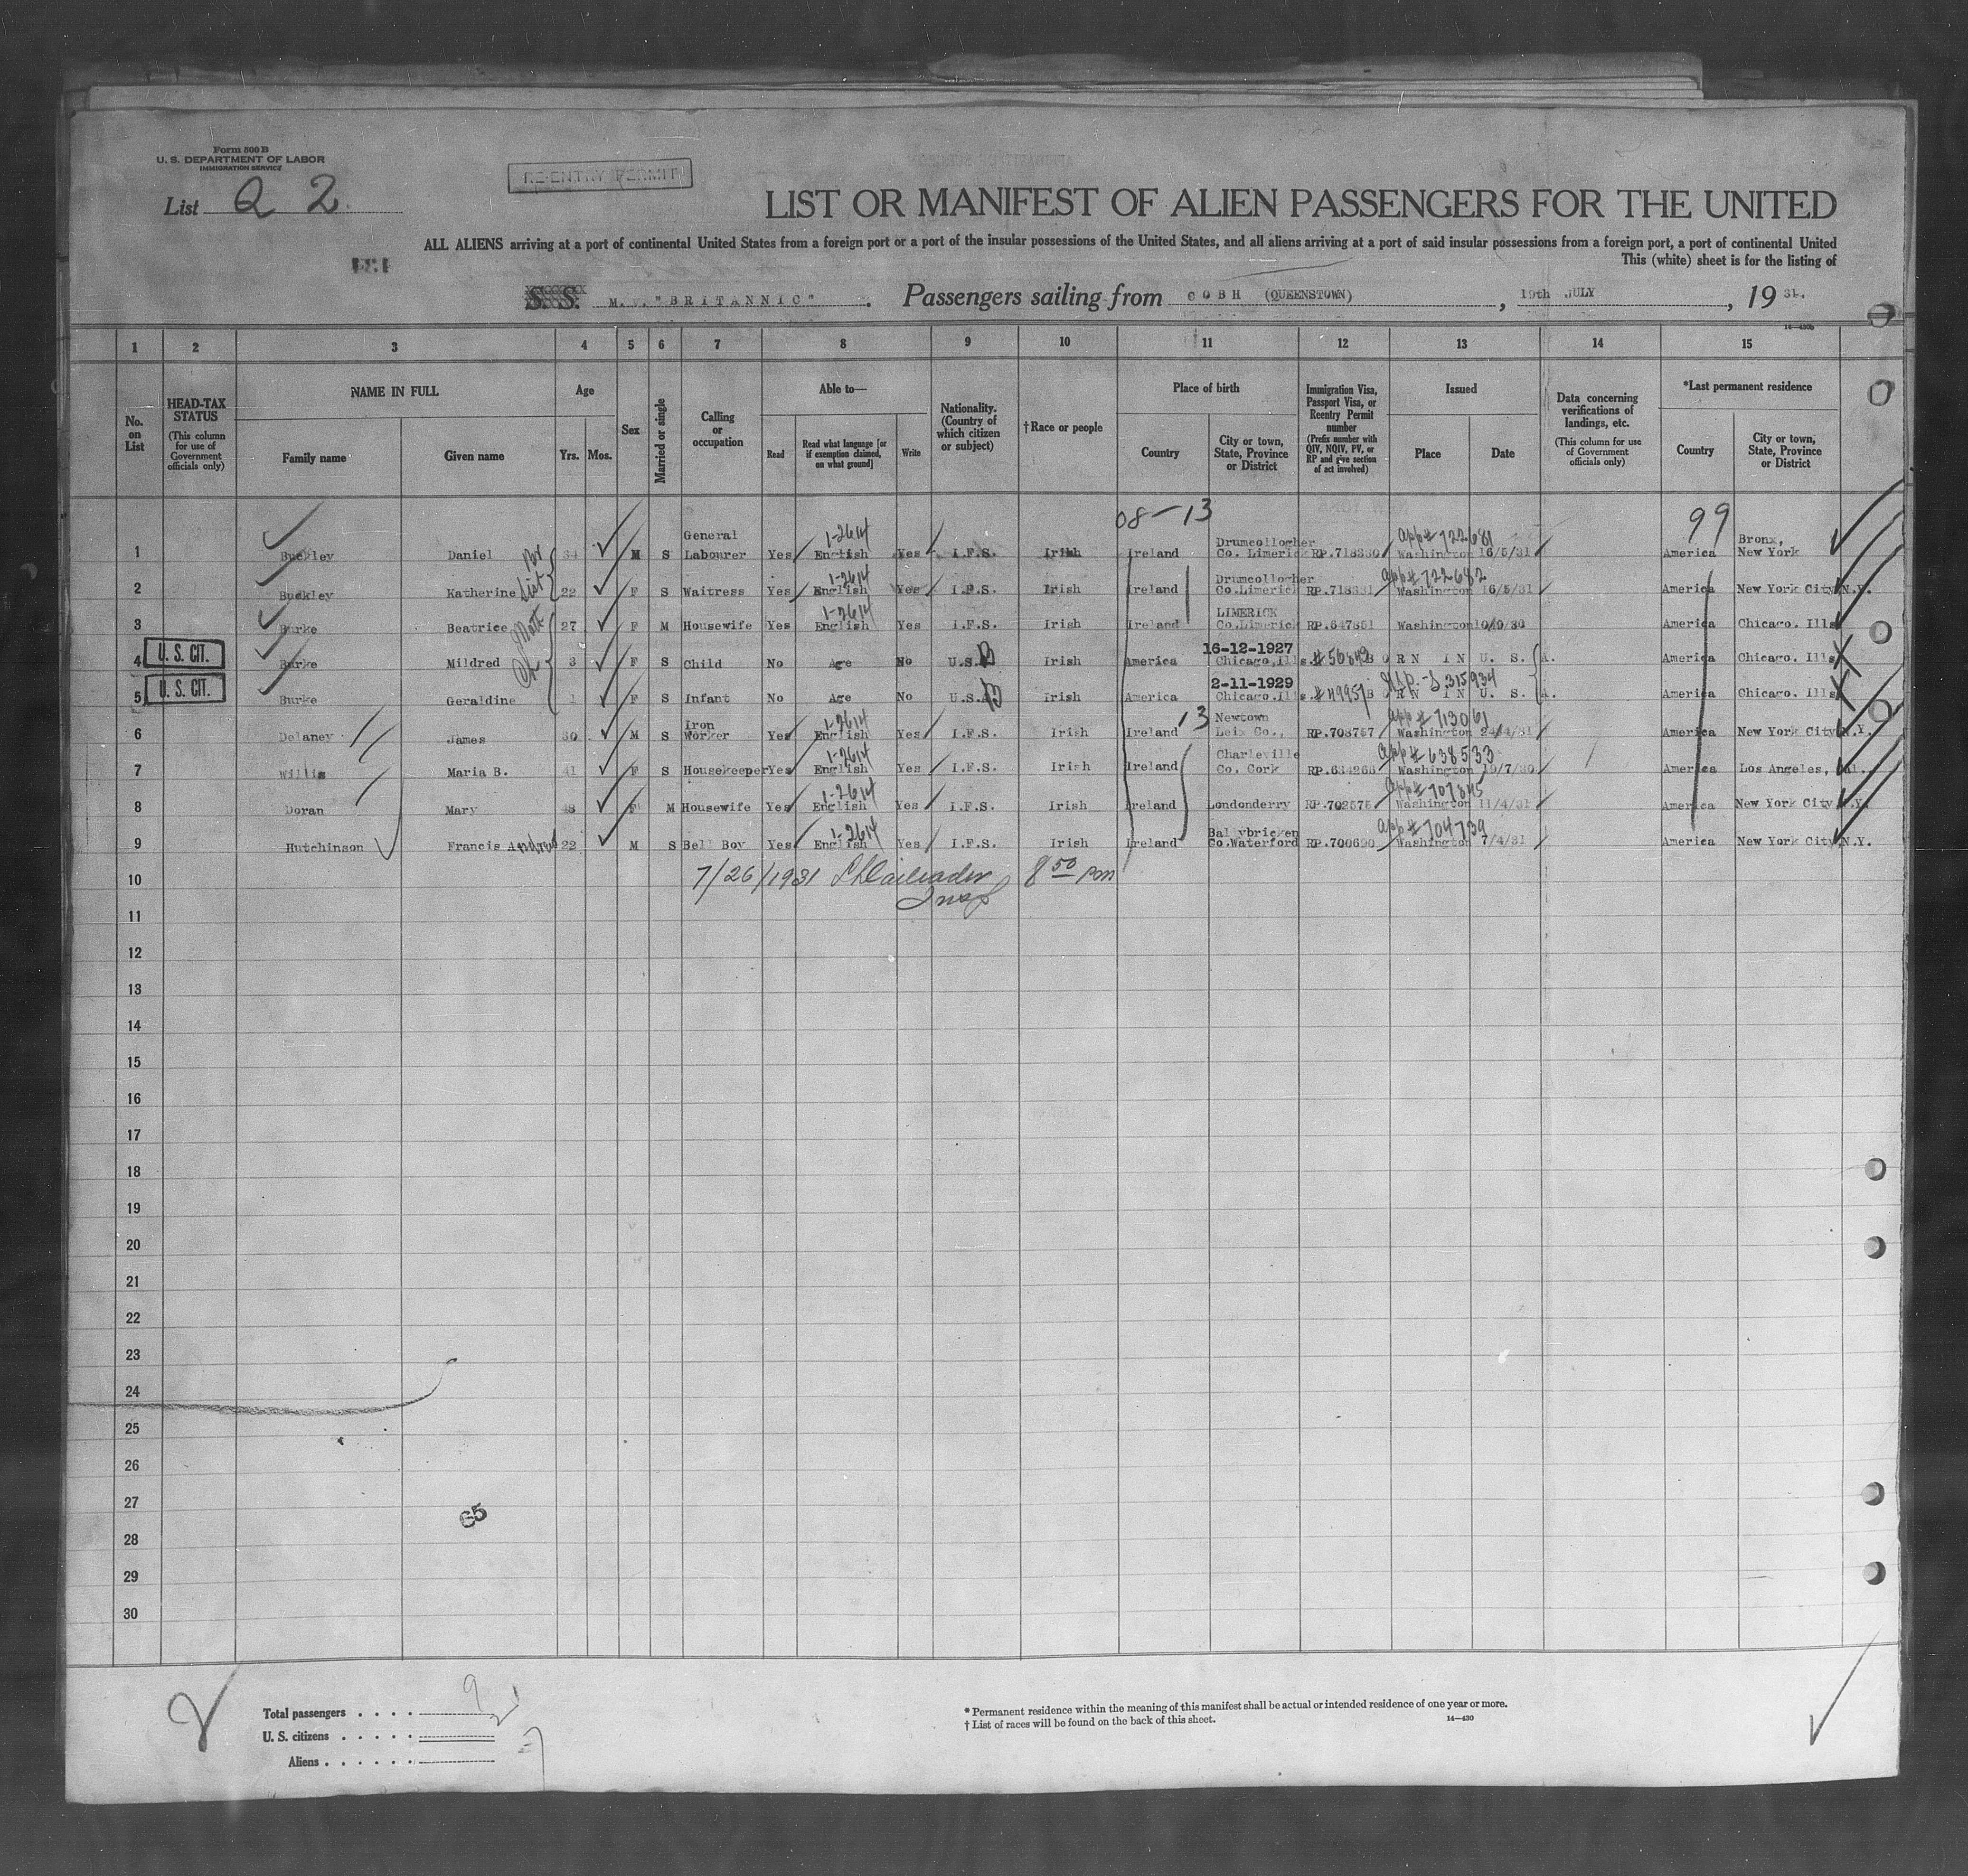 Form 500 B
U. S. DEPARTMENT OF LABOR
IMMIGRATION SERVICE
List Q 2.
RE-ENTRY PERMIT
LIST OR MANIFEST OF ALIEN PASSENGERS FOR THE UNITED
ALL ALIENS arriving at a port of continental United States from a foreign port or a port of the insular possessions of the United States, and all aliens arriving at a port of said insular possessions from a foreign port, a port of continental United
This (white) sheet is for the listing of
S. S. M.V. "BRITANNIC". Passengers sailing from COBH (QUEENSTOWN), 19th JULY, 19 31.
1 2 3 4 5 6 7 8 9 10 11 12 13 14 15
No. on List
HEAD-TAX STATUS
(This column for use of Government officials only)
NAME IN FULL
Family name Given name
Age
Yrs. Mos.
Sex
Married or single
Calling or occupation
Able to—
Read
Read what language [or if exemption claimed, on what ground]
Write
Nationality. (Country of which citizen or subject)
†Race or people
Place of birth
Country
City or town, State, Province or District
Immigration Visa, Passport Visa, or Reentry Permit number
(Prefix number with QIV, NQIV, PV, or RP and give section of act involved)
Issued
Place Date
Data concerning verifications of landings, etc.
(This column for use of Government officials only)
*Last permanent residence
Country
City or town, State, Province or District
08-13 99
1 Buckley Daniel 34 M S General Labourer Yes 1-2614 English Yes I.F.S. Irish Ireland Drumcollogher Co. Limerick RP.718330 app# 722681 Washington 16/5/31 America Bronx, New York
2 Buckley Katherine 22 F S Waitress Yes 1-2614 English Yes I.F.S. Irish Ireland Drumcollogher Co.Limerick RP.718331 app# 722682 Washington 16/5/31 America New York City N.Y.
3 Burke Beatrice 27 F M Housewife Yes 1-2614 English Yes I.F.S. Irish Ireland LIMERICK Co.Limerick RP.647851 Washington 10/9/30 America Chicago. Ills
4 U. S. CIT. Burke Mildred 3 F S Child No Age No U.S. Irish America 16-12-1927 Chicago,Ills. BORN IN U. S. A. America Chicago. Ills
5 U. S. CIT. Burke Geraldine 1 F S Infant No Age No U.S. Irish America 2-11-1929 Chicago.Ills. BORN IN U. S. A. America Chicago. Ills
6 Delaney James 30 M S Iron Worker Yes 1-2614 English Yes I.F.S. Irish Ireland 13 Newtown Leix Co., RP.708757 app# 713061 Washington 24/4/31 America New York City N.Y.
7 Willis Maria B. 41 F S Housekeeper Yes 1-2614 English Yes I.F.S. Irish Ireland Charleville Co. Cork RP.634268 app# 638533 Washington 19/7/30 America Los Angeles, Cal.
8 Doran Mary 48 F M Housewife Yes 1-2614 English Yes I.F.S. Irish Ireland Londonderry RP.702575 app# 707845 Washington 11/4/31 America New York City N.Y.
9 Hutchinson Francis Andrew 22 M S Bell Boy Yes 1-2614 English Yes I.F.S. Irish Ireland Ballybricken Co.Waterford RP.700690 app# 704739 Washington 7/4/31 America New York City N.Y.
10 7/26/1931 8 50 pm
Insp
11
12
13
14
15
16
17
18
19
20
21
22
23
24
25
26
27
65
28
29
30
Total passengers . . . . 9
U. S. citizens . . . . . 2
Aliens . . . . . . 7
* Permanent residence within the meaning of this manifest shall be actual or intended residence of one year or more.
† List of races will be found on the back of this sheet.
14—430